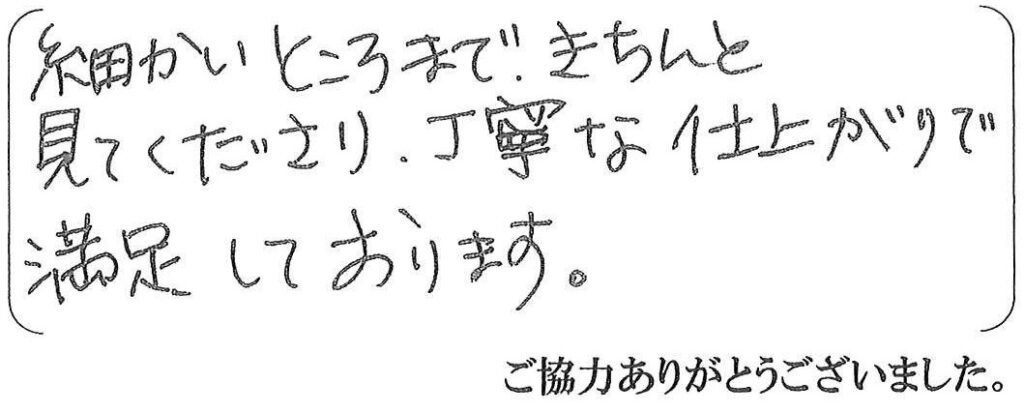 細かいところまで、きちんと
見てくださり、丁寧な仕上がりで
満足しております。
ご協力ありがとうございました。